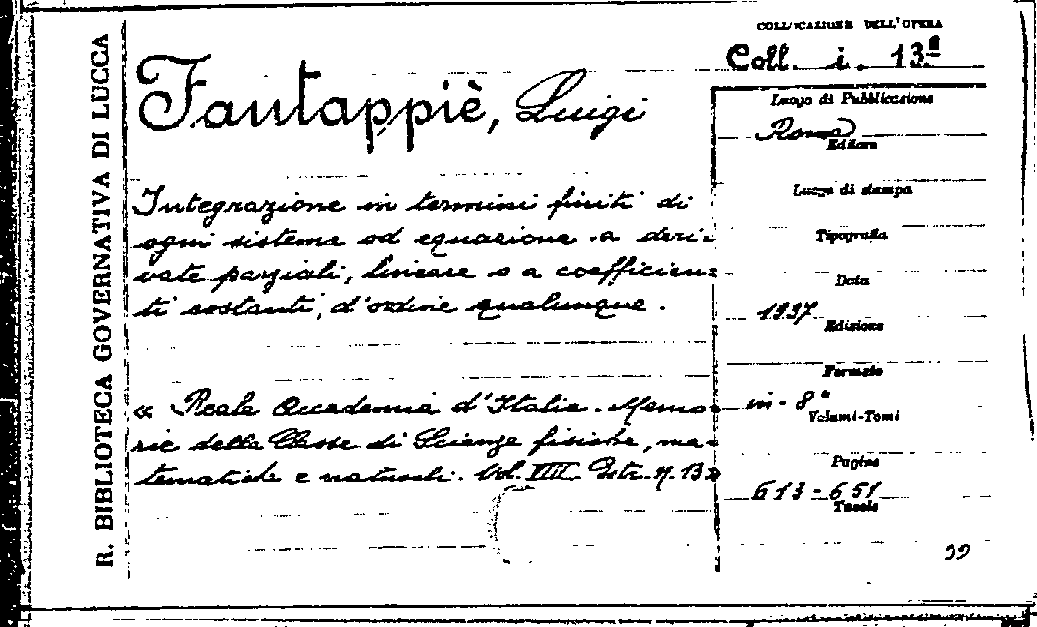 R. BIBLIOTECA GOVERNATIVA DI LUCCA
COLLOCAZIONE DELL'OPERA
Coll. i. 13.ª
Fantappiè, Luigi
Integrazione in termini finiti di
ogni sistema od equazione a deri-
vate parziali, lineare e a coefficien=
ti costanti, d'ordine qualunque.
« Reale Accademia d'Italia. Memo-
rie della Classe di Scienze fisiche, ma-
tematiche e naturali. Vol. VIII. Estr. n. 13»
Luogo di Pubblicazione
Roma
Editore
Luogo di stampa
Tipografia
Data
1937
Edizione
Formato
in-8°
Volumi-Tomi
Pagine
613-651
Tavole